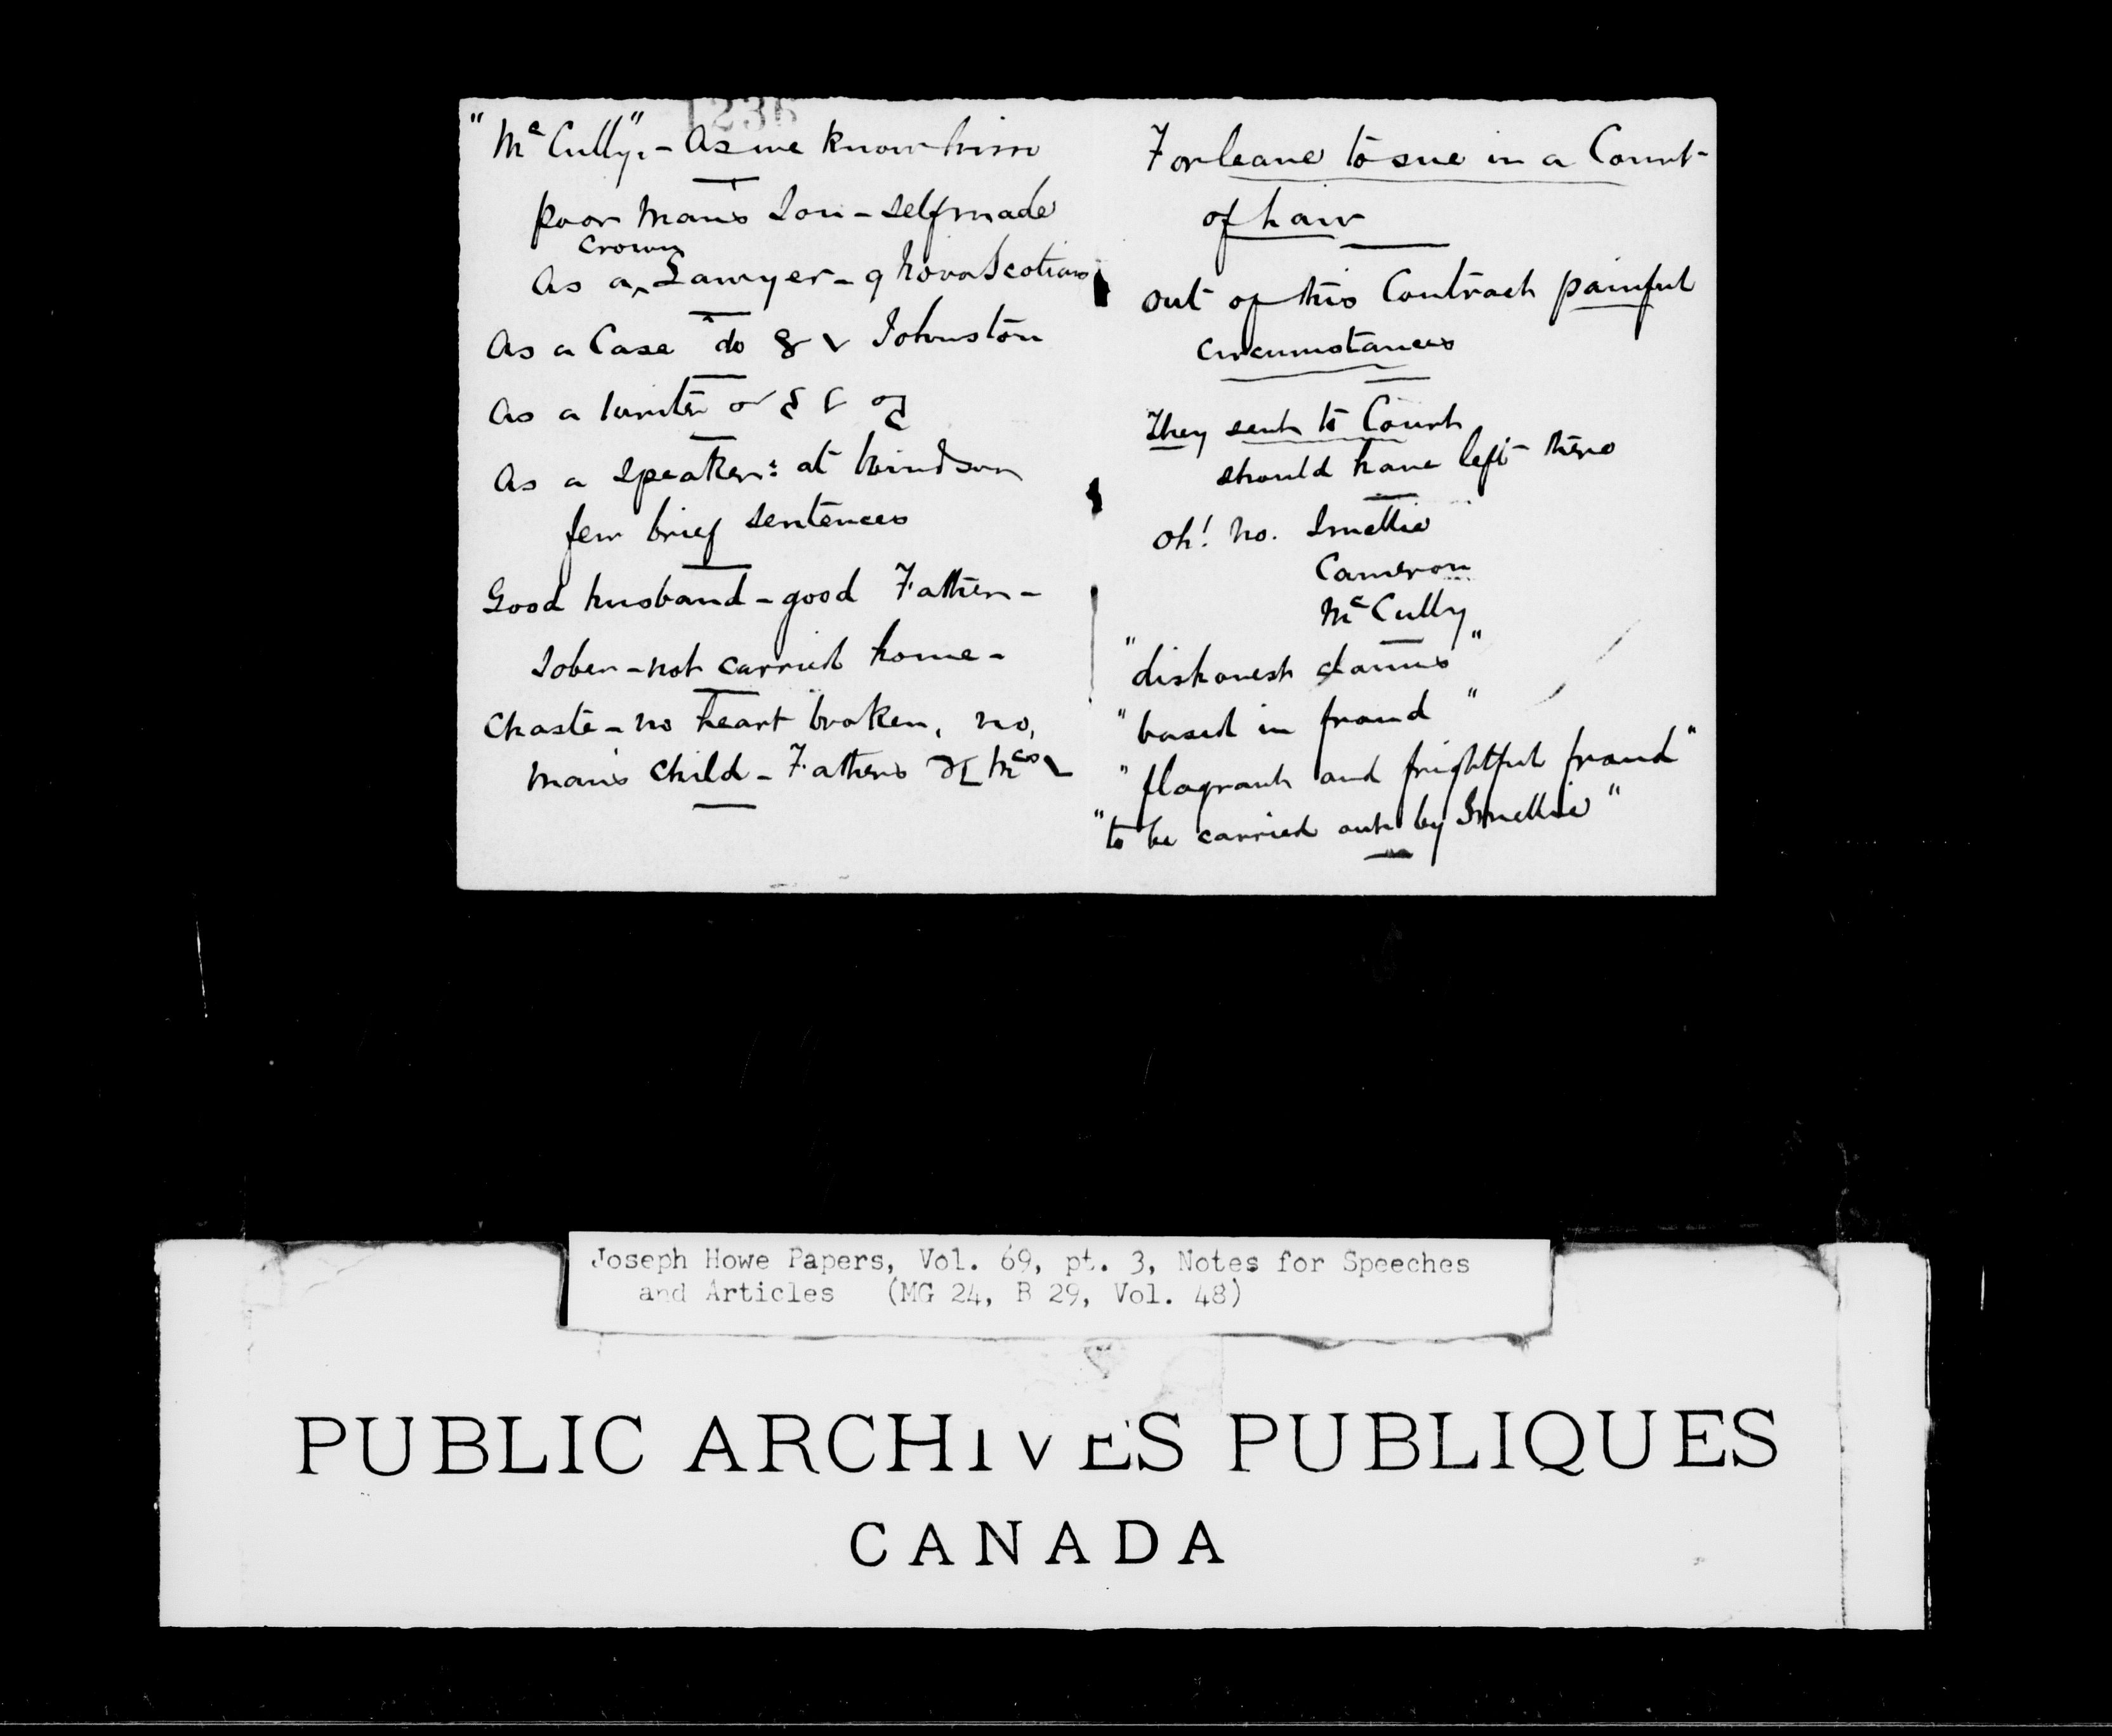 1236
"McCully". - As we know him
poor Man's Son - selfmade
Crown
As a ^ Lawyer - 9 Nova Scotians
As a Case do & Johnston
As a writer
As a Speaker: at Windsor
few brief sentences
Good husband - good Father -
Sober - not carried home -
Chaste - no heart broken, no,
man's child - Fathers
For leave to sue in a Court
of Law
Out of this Contract painful
Circumstances
They sent to Court
should have left there
Oh! No. Smellie
Cameron
McCully
"dishonest claims"
"based in fraud"
"flagrant and frightful fraud"
"to be carried out by Smellie"
Joseph Howe Papers, Vol. 69, pt. 3, Notes for Speeches
and Articles (MG 24, B 29, Vol. 48)
PUBLIC ARCHIVES PUBLIQUES
CANADA